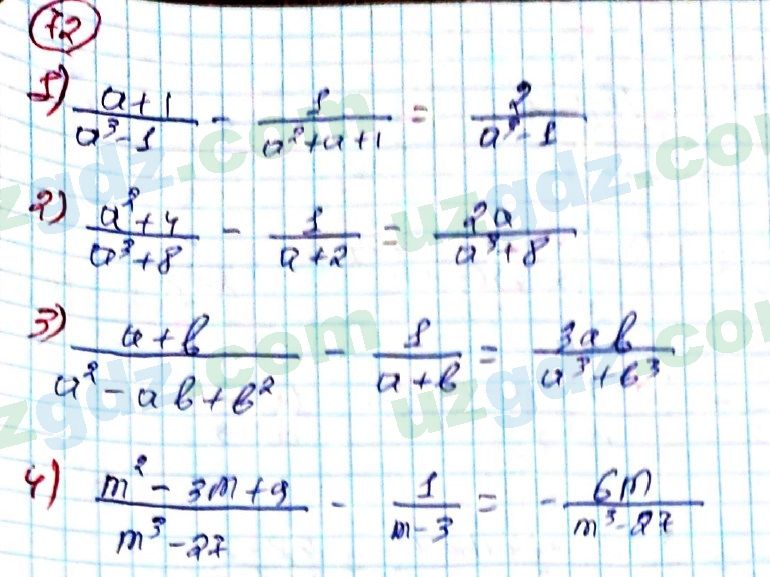 72
1) \frac{a+1}{a^3-1} - \frac{1}{a^2+a+1} = \frac{2}{a^3-1}
2) \frac{a^2+4}{a^3+8} - \frac{1}{a+2} = \frac{2a}{a^3+8}
3) \frac{a+b}{a^2-ab+b^2} - \frac{1}{a+b} = \frac{3ab}{a^3+b^3}
4) \frac{m^2-3m+9}{m^3-27} - \frac{1}{m-3} = -\frac{6m}{m^3-27}
uzgdz.com